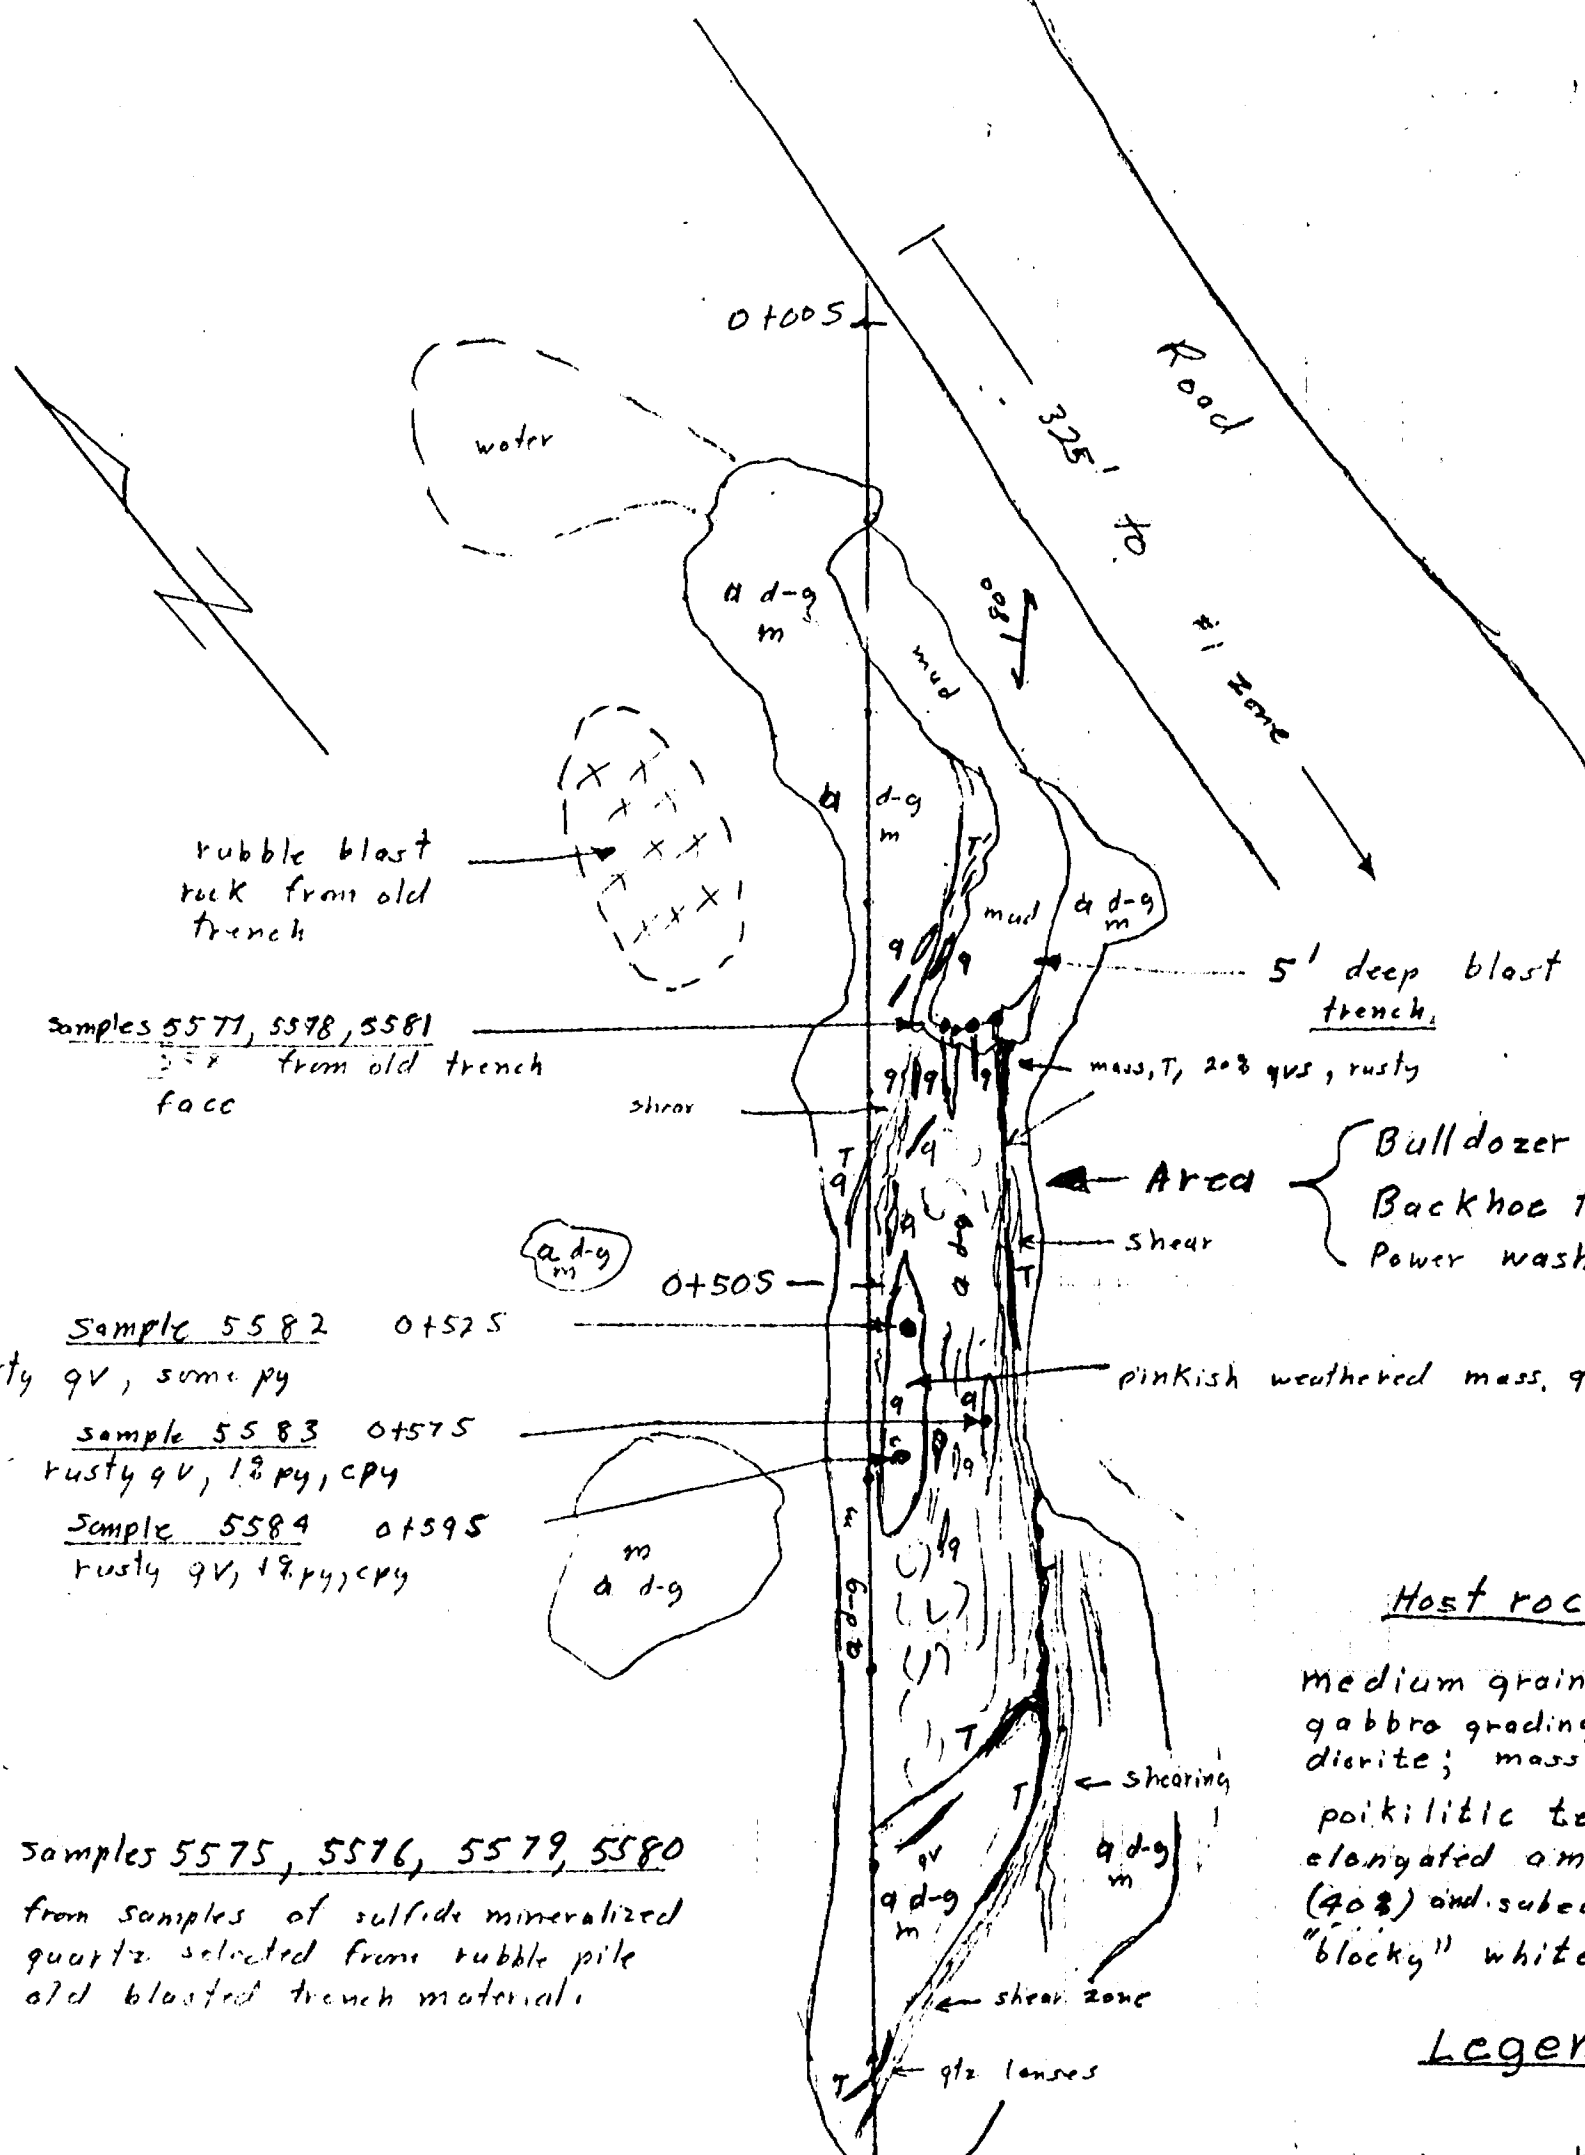 0+00S
Road
water
325' to #1 zone
a d-g
m
mud
80°
a d-g
m
T
rubble blast
rock from old
trench
mud
a d-g
m
q
q
5' deep blast
trench.
samples 5577, 5578, 5581
from old trench
face
mass, T, 20% qvs, rusty
q q q
shear
q
T
q
Area
Bulldozer
Backhoe
Power wash
q
a d-g
shear
T
a d-g
m
0+50S
Sample 5582 0+52S
qv, some py
pinkish weathered mass. q
sample 5583 0+57S
rusty qv, 1% py, cpy
q
q
q
Sample 5584 0+59S
rusty qv, 1% py, cpy
m
a d-g
q
m
a d-g
T
Host roc
medium grain
gabbro grading
diorite; mass
poikilitic te
elongated am
(40%) and sube
"blocky" white
T
T
shearing
samples 5575, 5576, 5579, 5580
from samples of sulfide mineralized
quartz selected from rubble pile
old blasted trench material.
qv
a d-g
m
a d-g
m
shear zone
Legen
T
qtz lenses